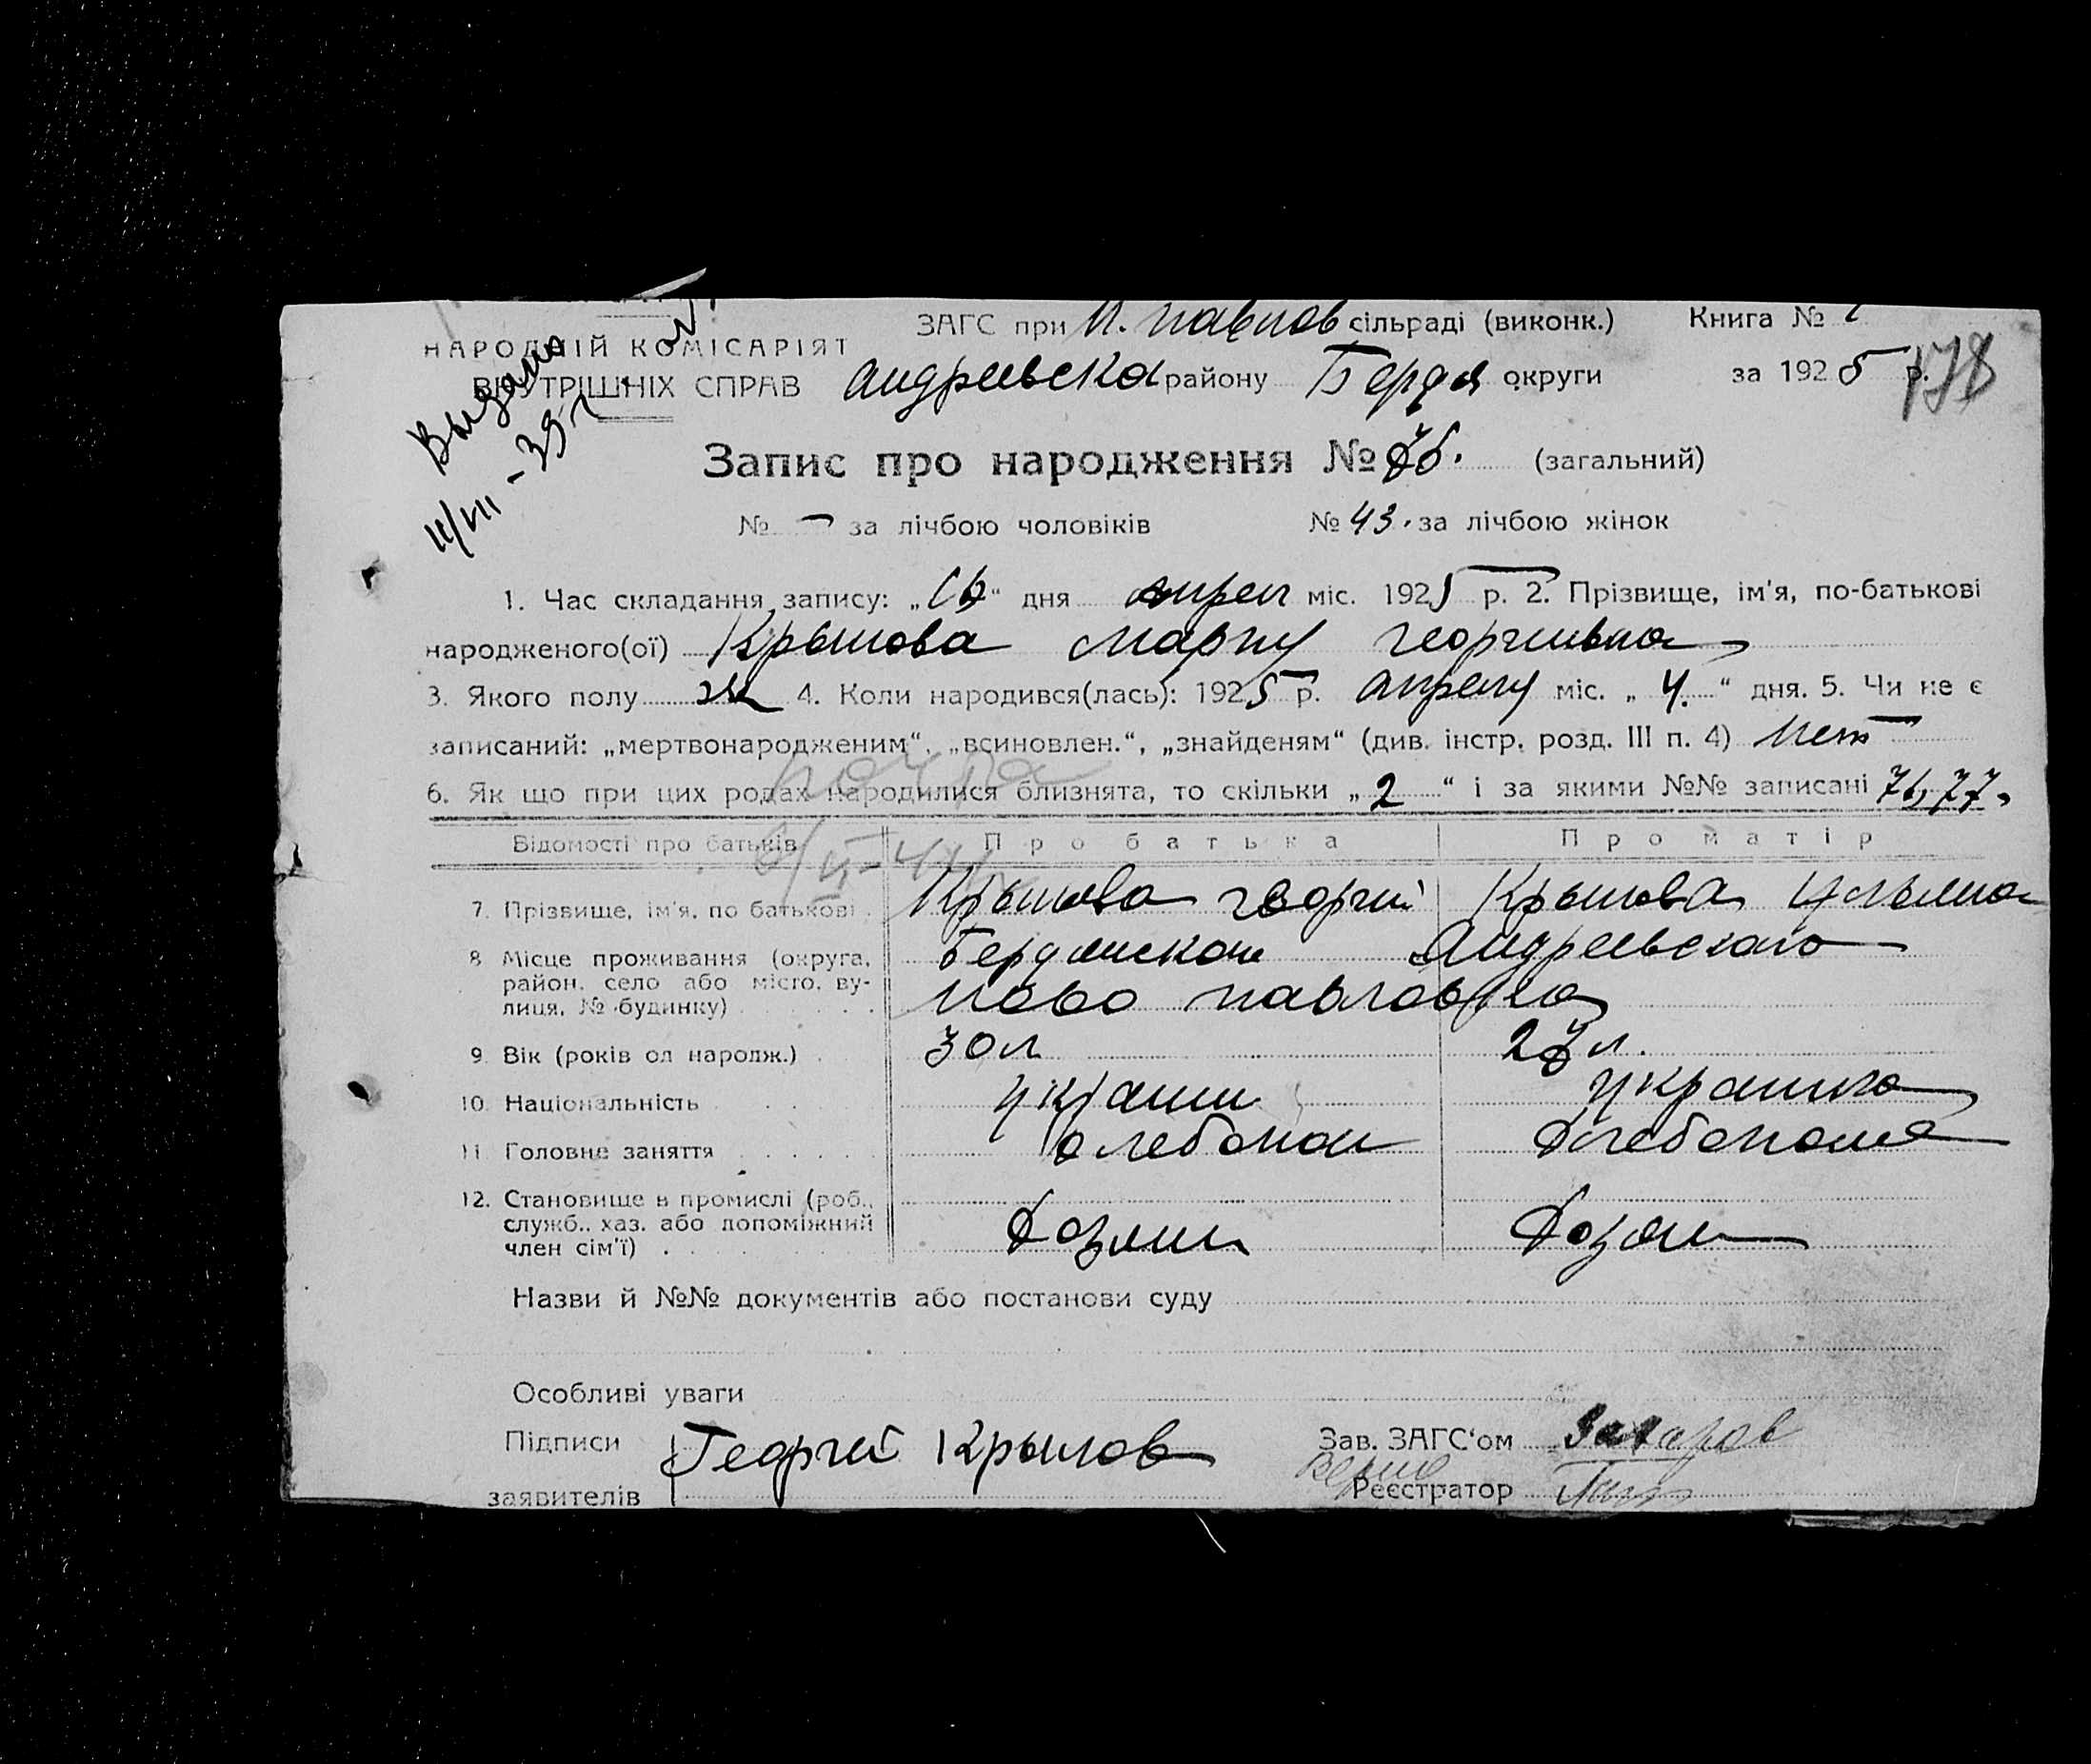 ЗАГС при Н. Павлов сільраді (виконк.) Книга №
НАРОДНІЙ КОМІСАРІЯТ
ВНУТРІШНІХ СПРАВ
Андреевска району Бердя округи за 1925 р. 178
Выдано
11/VII-39 г
Запис про народження № 76. (загальний)
№ — за лічбою чоловіків № 43. за лічбою жінок
1. Час складання запису: „ “ дня апрел міс. 1925 р. 2. Прізвище, ім'я, по-батькові
народженого(ої) Крылова Марпу Георгиевна
3. Якого полу ж 4. Коли народився(лась): 1925 р. апрелу міс. „ 4. “ дня. 5. Чи не є
записаний: „мертвонародженим“, „всиновлен.“, „знайденям“ (див. інстр. розд. III п. 4) Нет
6. Як що при цих родах народилися близнята, то скільки „ 2 “ і за якими №№ записані 76, 77.
Відомості про батьків Про батька Про матір
7. Прізвище, ім'я, по батькові Крылова Георгий Крылова
8. Місце проживання (округа, Бердянской Андреевского
район, село або місто, ву-
лиця, № будинку) Ново Павловка
9. Вік (років од народж.) 30 л 27 л.
10. Національність украин украинка
11. Головне заняття хлебопаш хлебопаше
12. Становище в промислі (роб.,
служб., хаз. або допоміжний
член сім'ї) Хозяин Хозяи
Назви й №№ документів або постанови суду
Особливі уваги
Підписи Георгий Крылов Зав. ЗАГС'ом Захаров
Верно
заявителів Реєстратор